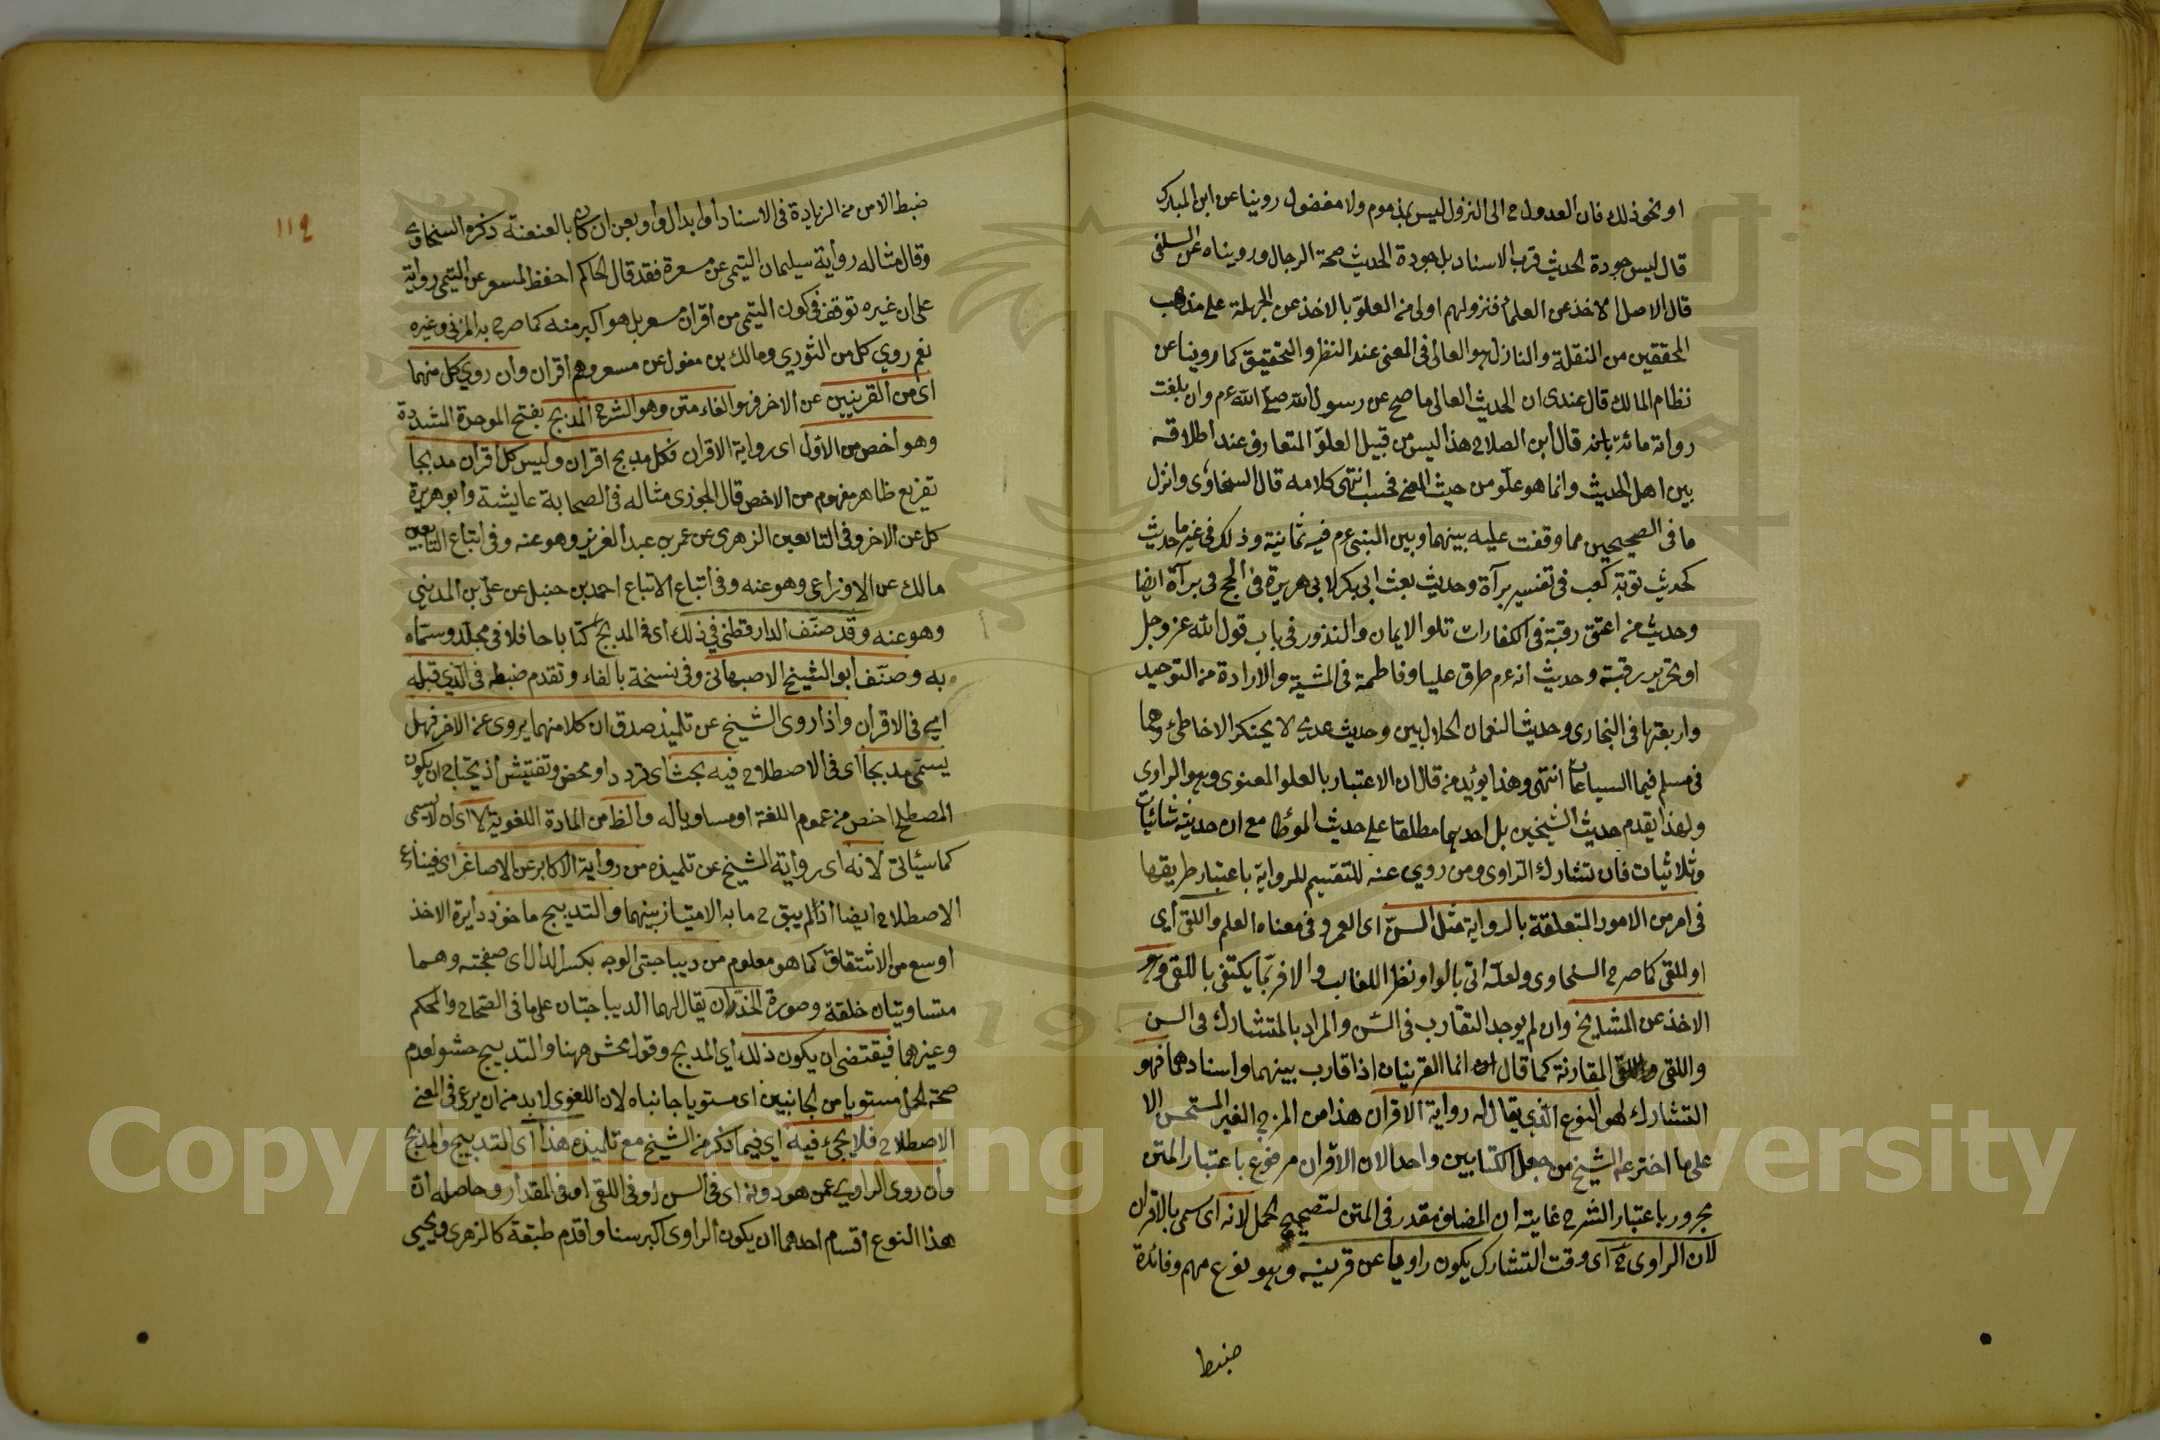 او نحو ذلك فان العدول ح الى النزول ليس بمذموم ولا مفضول روينا عن ابن المبارك
قال ليس جودة الحديث قرب الاسناد بل جودة الحديث صحة الرجال وروينا عن السلفي
قال الاصل الاخذ عن العلماء فنزولهم اولى من العلو بالاخذ عن الجهلة على مذهب
المحققين من النقلة والنازل هو العالي في المعنى عند النظر والتحقيق كما روينا عن
نظام الملك قال عندي ان الحديث العالي ما صح عن رسول الله صلى الله ءم وان بلغت
رواته مائة قال ابن الصلاح هذا ليس من قبيل العلو المتعارف عند اطلاقه
بين اهل الحديث وانما هو علو من حيث المعنى فحسب انتهى كلامه قال السخاوى وانزل
ما في الصحيحين مما وقفت عليه بينهما وبين النبي ءم فيه ثمانية وذلك في غير ما حديث
كحديث توبة كعب في تفسير برآة وحديث بعث ابي بكر لابي هريرة في الحج في برآة ايضا
وحديث من اعتق رقبة في الكفارات تلو الايمان والنذور في باب قول الله عز وجل
او تحرير رقبة وحديث انه ءم طرق عليا وفاطمة في المشية والارادة من التوحيد
واربعتها في البخارى وحديث النعمان الحلال بين وحديث عدي لا يحتكر الا خاطئ وهما
في مسلم فيما السباعيان انتهى وهذا يؤيد من قال ان الاعتبار بالعلو المعنوى وهو الراوى
ولهذا يقدم حديث الشيخين بل احدهما مطلقا على حديث الموطأ مع ان حديثه ثنائيات
وثلاثيات فان تشارك الراوى ومن روي عنه للتقسيم للرواية باعتبار طريقها
في امر من الامور المتعلقة بالرواية مثل السن اى العمر وفي معناه العلم واللقى أي
او اللقى كما صرح السخاوى ولعله اتى بالواو نظرا للغالب والا فربما يكتفى باللقى وهو
الاخذ عن المشايخ وان لم يوجد التقارب في السن والمراد بالتشارك في السن
واللقى المقارنة كما قال انما القرينان اذا قارب بينهما واسنادهما فهو
التشارك لهو النوع الذي يقال له رواية الاقران هذا من المزج الغير المستحسن الا
على ما اخترعه الشيخ من جعل الكتابين واحدا لان الاقران مرفوع باعتبار المتن
مجرور باعتبار الشرح غايته ان المضاف مقدر في المتن لتصحيح الحمل لانه اى سمى بالاقران
لان الراوى ح أى وقت التشارك يكون راويا عن قرينه وهو نوع مهم وفائدة
ضبط
١١٩
ضبط الامن من الزيادة في الاسناد أو ابدال واو بعن ان كان بالعنعنة ذكره السخاوي
وقال مثاله رواية سليمان التيمي عن مسعرة فقد قال الحاكم احفظ لمسعر عن التيمي رواية
على ان غيره توقف في كون التيمي من اقران مسعر بل هو اكبر منه كما صرح به المزني وغيره
نعم روي كل من الثوري ومالك بن مغول عن مسعر وهم أقران وأن روي كل منهما
أى من القرينين عن الاخر فهو الفاء متن وهو الشرح المدبج بفتح الموحدة المشددة
وهو أخص من الأول اى رواية الاقران فكل مدبج اقران وليس كل أقران مدبجا
تفريع ظاهر مفهوم من الاخص قال الجوزى مثاله في الصحابة عايشة وابو هريرة
كل عن الاخر وفي التابعين الزهرى عن عمر بن عبد العزيز وهو عنه وفي اتباع التابعين
مالك عن الاوزاعى وهو عنه وفي اتباع الاتباع احمد بن حنبل عن على بن المديني
وهو عنه وقد صنف الدارقطني في ذلك أى في المدبج كتابا حافلا في مجلد وسماه
به وصنف ابو الشيخ الاصبهاني وفي نسخة بالفاء وتقدم ضبطه في الذي قبله
اي في الاقران واذا روى الشيخ عن تلميذ صدق ان كلا منهما يروى عن الاخر فهل
يسمى مدبجا أى في الاصطلاح فيه بحث اى تردد او محض وتفتيش اذ يحتاج ان يكون
المصطلح اخص من عموم اللغة او مساويا له والظ من المادة اللغوية لا أى لا يسمى
كما سيئاتى لانه اى رواية الشيخ عن تلميذه من رواية الاكابر عن الاصاغر
الاصطلاح ايضا اذ لم يبق ح ما به الامتياز بينهما والتدبيج ماخوذ دايرة الاخذ
اوسع من الاشتقاق كما هو معلوم من ديباجتي الوجه بكسر الدال اى صفحته وهما
متساويتان خلقة وصورة الخدان يقال لهما الديباجتان على ما في الصحاح والمحكم
وغيرهما فيقتضي ان يكون ذلك أي المدبج وقول محش ههنا والتدبيج حشو لعدم
صحة الحمل مستويا من الجانبين اى مستويا جانباه لان اللغوى لابد من ان يرعى في المعنى
الاصطلاح فلا يجيء فيه أي فيما ذكر من الشيخ مع تلميذه هذا أى التدبيج والمدبج
وأن روى الراوي عمن هو دونه اى في السن او في اللقى او في المقدار وحاصله ان
هذا النوع اقسام احدهما ان يكون الراوى اكبر سنا واقدم طبقة كالزهرى ويحيى
Copyright © King Saud University
195